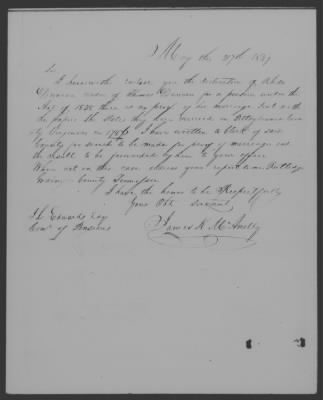 May the 27th 1849
Sir
I herewith enclose you the declaration of Rhoda
widow of Thomas for a pension under the
Act of 1838 there is no proof of one marriage sent with
the papers She states they were married in Pittsylvania
ty Virginia in 1786 I have written to Clerk of said
County for search to be made for proof of marriage and
the result to be forwarded by him to your office
When act on this case address your report to me Rutledge
County Tennessee
I have the honor to be Respectfully
Your Obt Servant
James K McAnelly
J L Edwards Esq
Com of Pensions